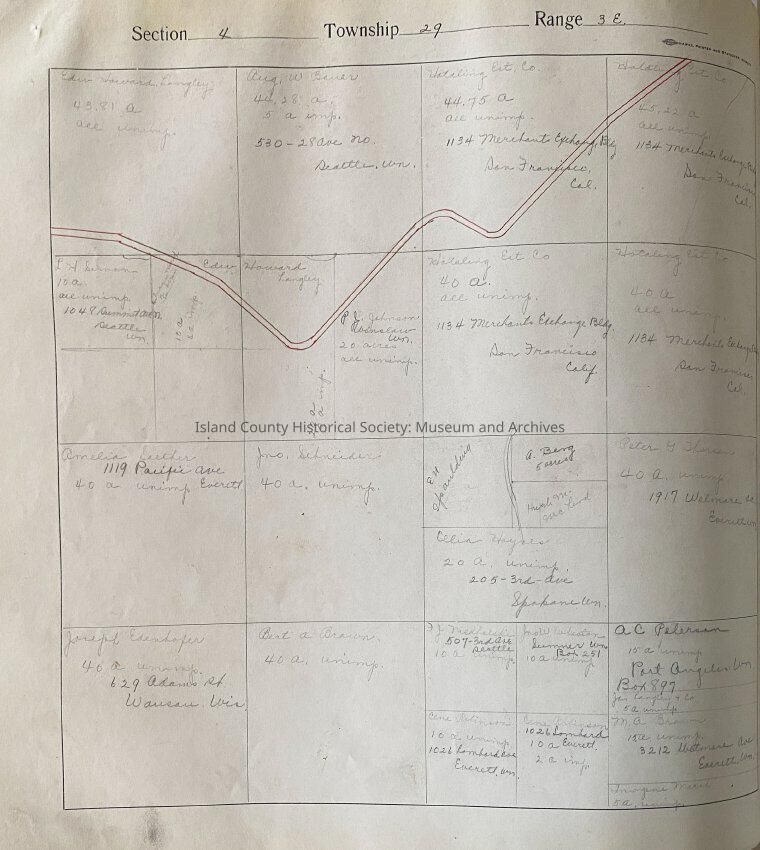 Section 4 Township 29 Range 3 E.
Edw Howard, Langley
43.81 a
all unimp.
Aug. W Bauer
44.28 a.
5 a imp.
530-28 Ave No.
Seattle, Wn.
Hotaling Est. Co.
44.75 a
all unimp.
1134 Merchants Exchang. Bldg
San Francisco,
Cal.
Hotaling Est Co
45.22 a
all unimp.
1134 Merchants Exchange
San Francisco
Cal.
10 a
all unimp
1048 Summit
Seattle
Wn.
10 a
Edw. Howard
Langley
P. J. Johnson
Wn.
20 acres
all unimp.
Hotaling Est Co
40 a.
all unimp.
1134 Merchants Exchange Bldg.
San Francisco
Calif.
Hotaling Est Co
40 a
all unimp.
1134 Merchants Exchange
San Francisco
Cal.
Island County Historical Society: Museum and Archives
Amelia
1119 Pacific Ave
40 a unimp Everett
Jno. Schneider
40 a. unimp.
E H
Spaulding
A. Berg
5 acres
Celia Haynes
20 a. unimp.
205-3rd-Ave
Spokane Wn.
Peter G
40 a. unimp
1917 Wetmore
Everett Wn
Joseph Edenhofer
40 a unimp.
629 Adams St.
Wausau, Wis
Bert A Brown.
40 a. unimp.
507-3rd Ave
Seattle
10 a unimp
Sumner Wn
Box 251
10 a unimp
A C Peterson
15 a unimp
Port Angeles Wn.
Box 897
5 a unimp
10 a unimp.
1026 Lombard Ave
Everett, Wn.
1026 Lombard
10 a Everett.
2 a imp.
M. A. Brown
15 a unimp.
3212 Wetmore Ave
Everett, Wn.
Imogene
5 a. unimp.